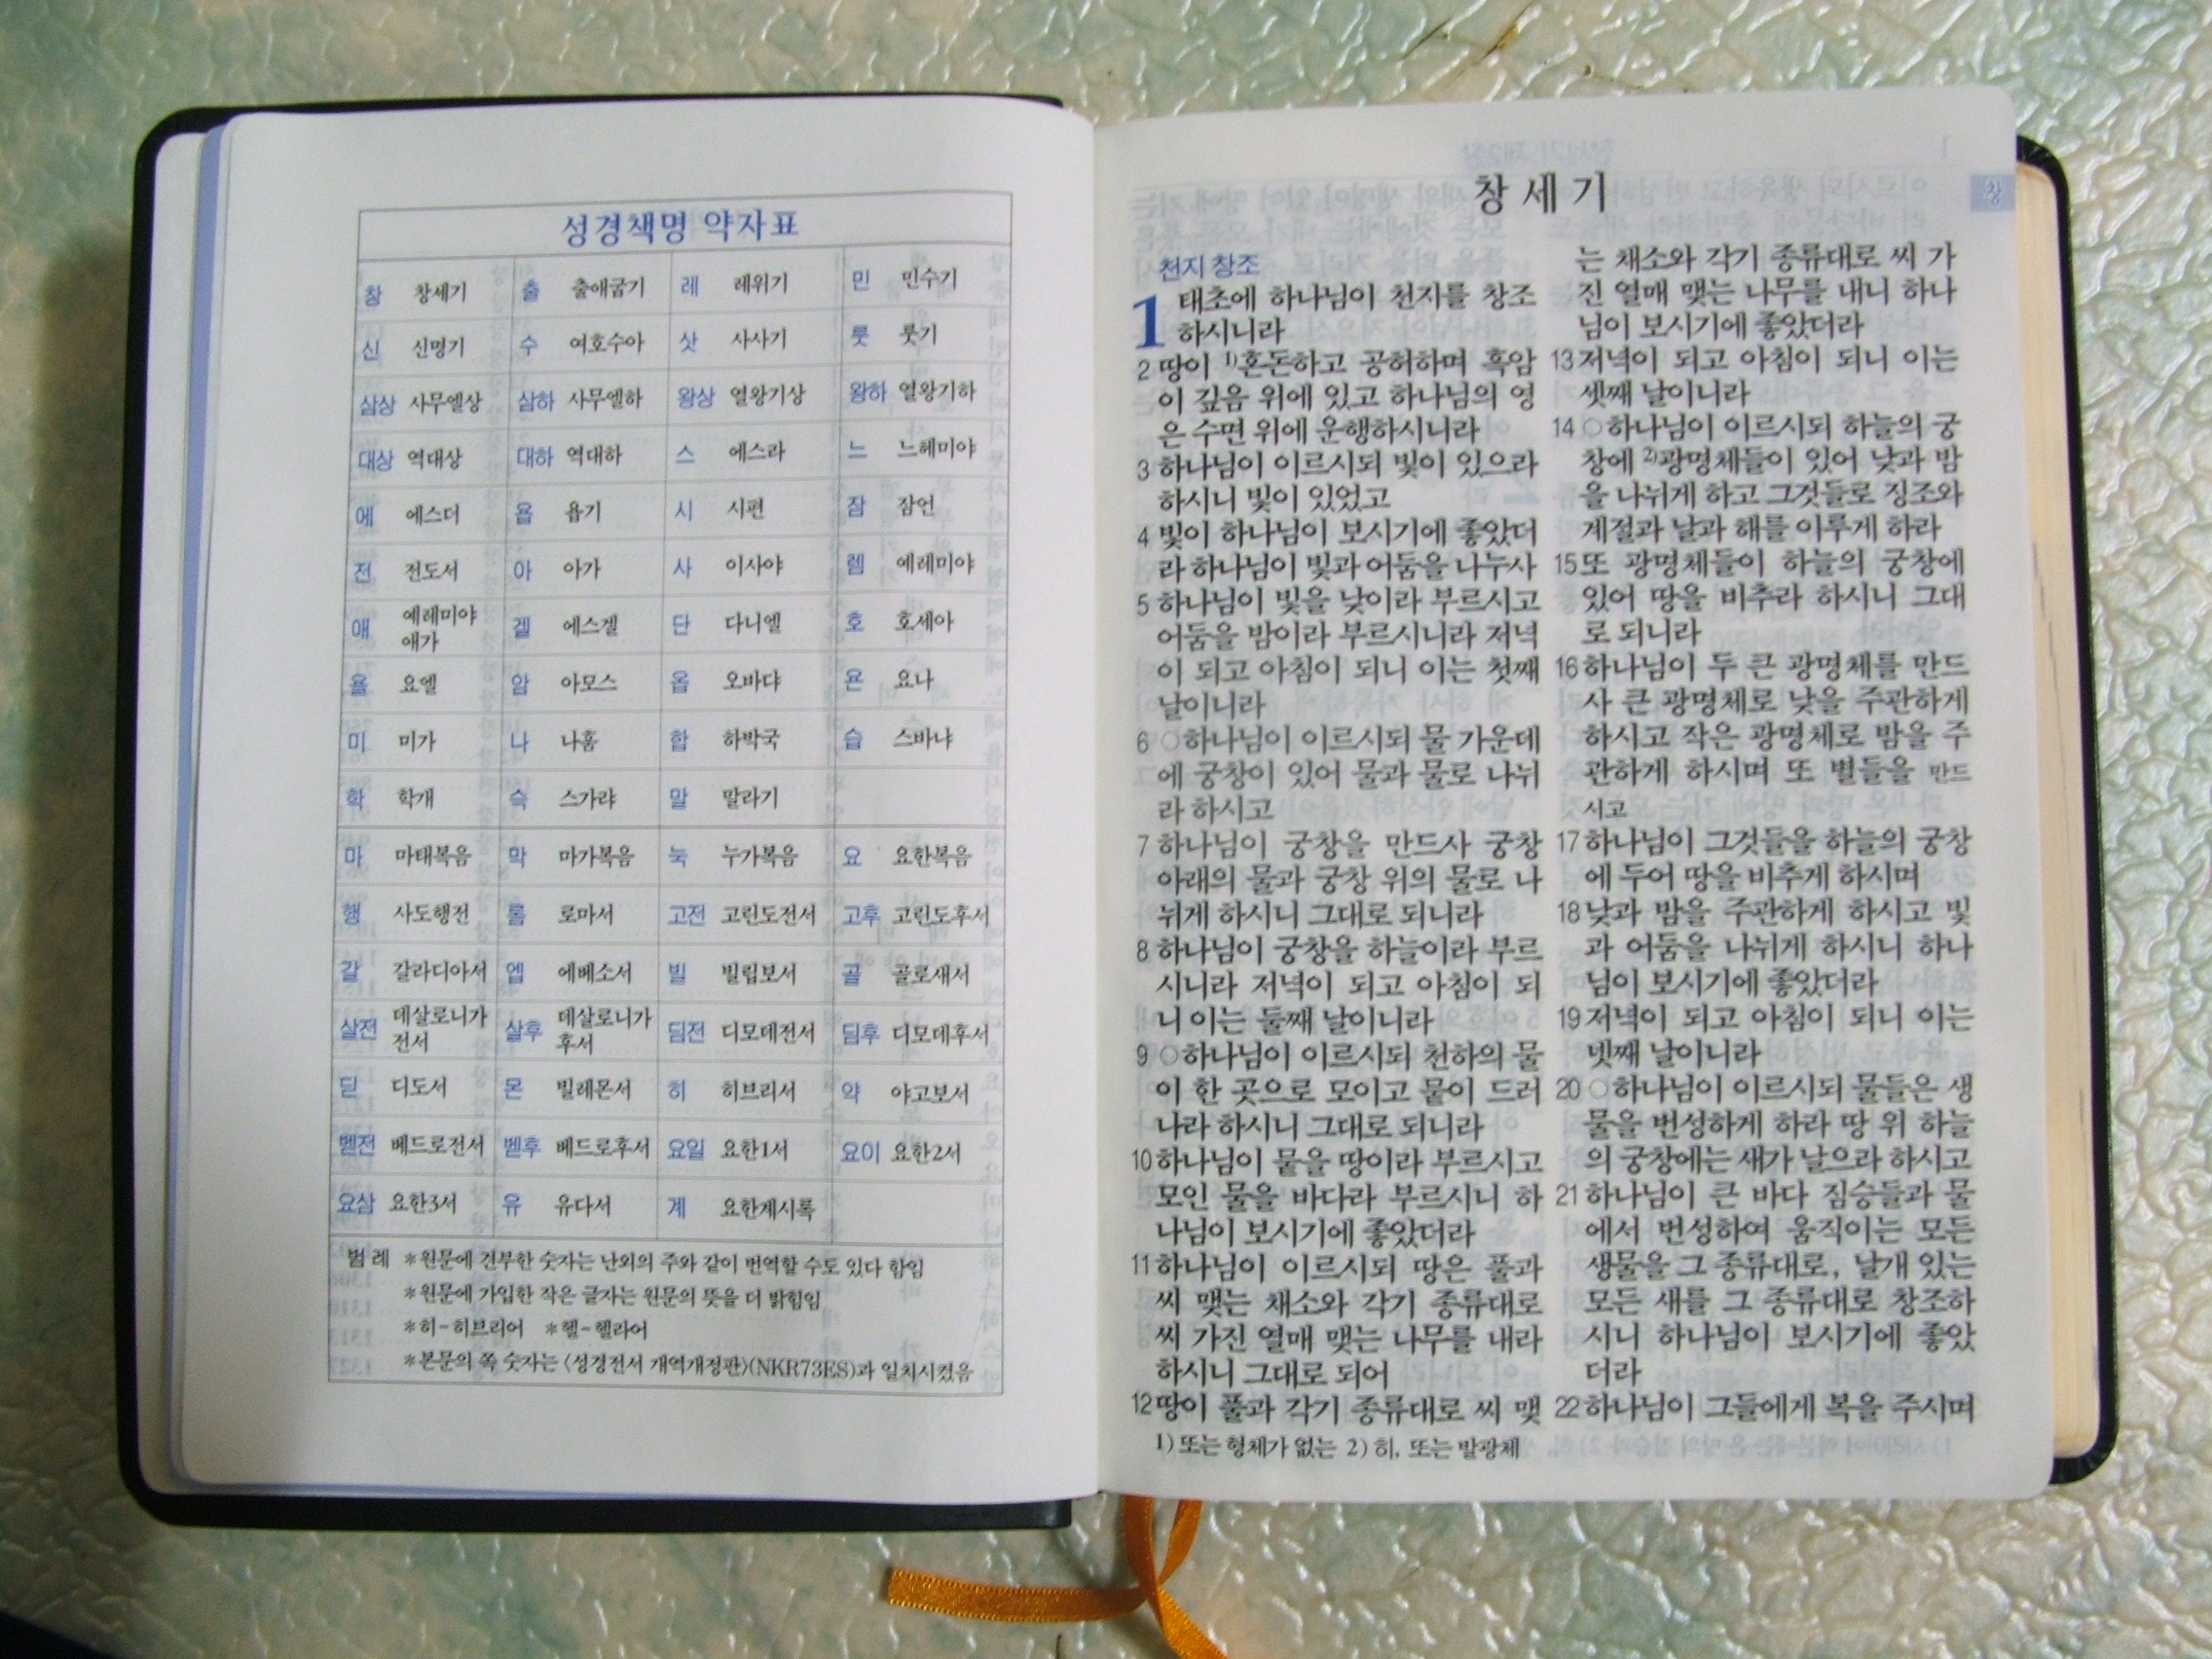 성경책명 약자표
창 창세기 출 출애굽기 레 레위기 민 민수기
신 신명기 수 여호수아 삿 사사기 룻 룻기
삼상 사무엘상 삼하 사무엘하 왕상 열왕기상 왕하 열왕기하
대상 역대상 대하 역대하 스 에스라 느 느헤미야
에 에스더 욥 욥기 시 시편 잠 잠언
전 전도서 아 아가 사 이사야 렘 예레미야
애 예레미야 애가 겔 에스겔 단 다니엘 호 호세아
욜 요엘 암 아모스 옵 오바댜 욘 요나
미 미가 나 나훔 합 하박국 습 스바냐
학 학개 슥 스가랴 말 말라기
마 마태복음 막 마가복음 눅 누가복음 요 요한복음
행 사도행전 롬 로마서 고전 고린도전서 고후 고린도후서
갈 갈라디아서 엡 에베소서 빌 빌립보서 골 골로새서
살전 데살로니가 전서 살후 데살로니가 후서 딤전 디모데전서 딤후 디모데후서
딛 디도서 몬 빌레몬서 히 히브리서 약 야고보서
벧전 베드로전서 벧후 베드로후서 요일 요한1서 요이 요한2서
요삼 요한3서 유 유다서 계 요한계시록
범 례 *원문에 견부한 숫자는 난외의 주와 같이 번역할 수도 있다 함임
*원문에 가입한 작은 글자는 원문의 뜻을 더 밝힘임
*히-히브리어 *헬-헬라어
*본문의 쪽 숫자는 〈성경전서 개역개정판〉(NKR73ES)과 일치시켰음
창 세 기
창
천지 창조
1 태초에 하나님이 천지를 창조
하시니라
2 땅이 1)혼돈하고 공허하며 흑암
이 깊음 위에 있고 하나님의 영
은 수면 위에 운행하시니라
3 하나님이 이르시되 빛이 있으라
하시니 빛이 있었고
4 빛이 하나님이 보시기에 좋았더
라 하나님이 빛과 어둠을 나누사
5 하나님이 빛을 낮이라 부르시고
어둠을 밤이라 부르시니라 저녁
이 되고 아침이 되니 이는 첫째
날이니라
6 ○하나님이 이르시되 물 가운데
에 궁창이 있어 물과 물로 나뉘
라 하시고
7 하나님이 궁창을 만드사 궁창
아래의 물과 궁창 위의 물로 나
뉘게 하시니 그대로 되니라
8 하나님이 궁창을 하늘이라 부르
시니라 저녁이 되고 아침이 되
니 이는 둘째 날이니라
9 ○하나님이 이르시되 천하의 물
이 한 곳으로 모이고 뭍이 드러
나라 하시니 그대로 되니라
10 하나님이 뭍을 땅이라 부르시고
모인 물을 바다라 부르시니 하
나님이 보시기에 좋았더라
11 하나님이 이르시되 땅은 풀과
씨 맺는 채소와 각기 종류대로
씨 가진 열매 맺는 나무를 내라
하시니 그대로 되어
12 땅이 풀과 각기 종류대로 씨 맺
는 채소와 각기 종류대로 씨 가
진 열매 맺는 나무를 내니 하나
님이 보시기에 좋았더라
13 저녁이 되고 아침이 되니 이는
셋째 날이니라
14 ○하나님이 이르시되 하늘의 궁
창에 2)광명체들이 있어 낮과 밤
을 나뉘게 하고 그것들로 징조와
계절과 날과 해를 이루게 하라
15 또 광명체들이 하늘의 궁창에
있어 땅을 비추라 하시니 그대
로 되니라
16 하나님이 두 큰 광명체를 만드
사 큰 광명체로 낮을 주관하게
하시고 작은 광명체로 밤을 주
관하게 하시며 또 별들을 만드
시고
17 하나님이 그것들을 하늘의 궁창
에 두어 땅을 비추게 하시며
18 낮과 밤을 주관하게 하시고 빛
과 어둠을 나뉘게 하시니 하나
님이 보시기에 좋았더라
19 저녁이 되고 아침이 되니 이는
넷째 날이니라
20 ○하나님이 이르시되 물들은 생
물을 번성하게 하라 땅 위 하늘
의 궁창에는 새가 날으라 하시고
21 하나님이 큰 바다 짐승들과 물
에서 번성하여 움직이는 모든
생물을 그 종류대로, 날개 있는
모든 새를 그 종류대로 창조하
시니 하나님이 보시기에 좋았
더라
22 하나님이 그들에게 복을 주시며
1) 또는 형체가 없는 2) 히, 또는 발광체